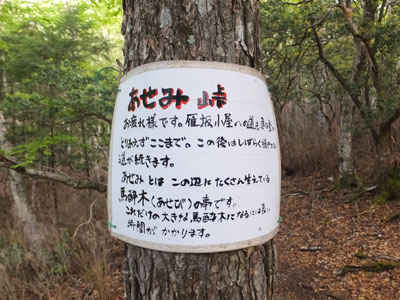 あせみ峠
お疲れ様です。雁坂小屋への道も
とりあえずここまで。この後はしばらく
道が続きます。
あせみとはこの辺にたくさん生えている
馬酔木(あせび)の事です。
これだけの大きな馬酔木になるには長い
時間がかかります。